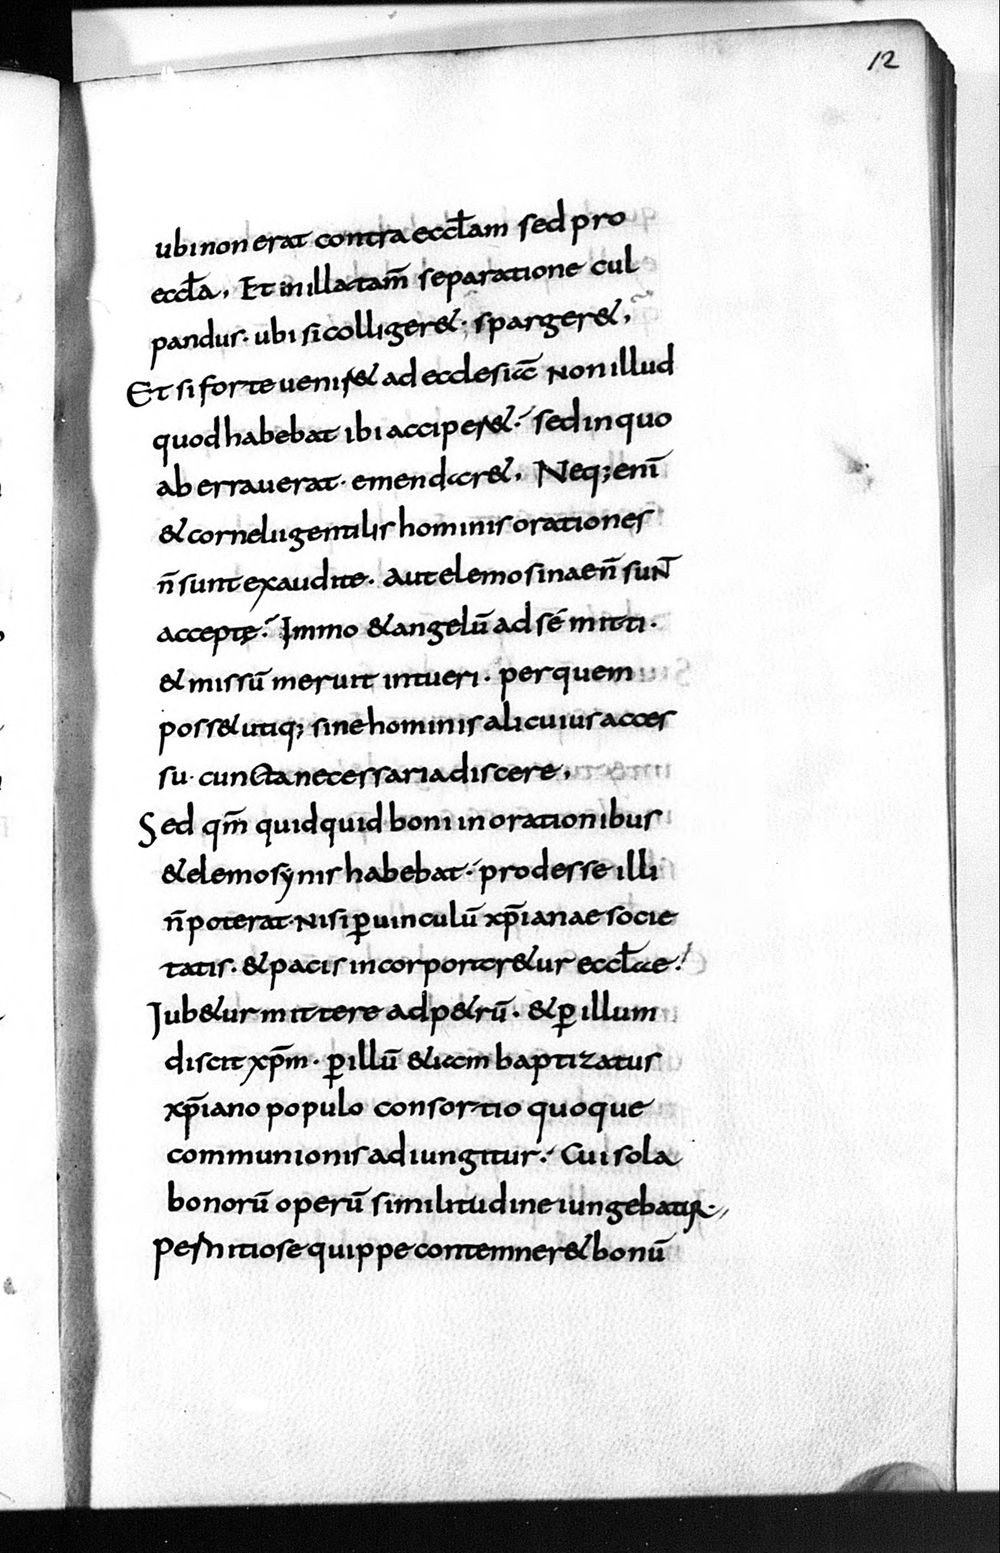 12
ubi non erat contra eccłam sed pro
eccła, Et in illa tam̄ separatione cul
pandus· ubi si colliger&· sparger&,
Et si forte uenis& ad ecclesiā Non illud
quod habebat ibi acciper&·́ sed in quo
aberrauerat· emendar&, Neq; enī
& cornelii gentilis hominis orationes
n̄ sunt exaudite. Aut elemosinae n̄ suNT̄
acceptę·́ Immo & angelū ad sé mitti·
& missū meruit intueri· per quem
poss& utiq; sine hominis alicuius acces
su· cuncta necessaria discere,
Sed qm̄ quidquid boni in orationibus
& elemosynis habebat·́ prodesse illi
n̄ poterat· Nisi ꝑ uinculū xp̄ianae socie
tatis· & pacis incorporar&ur eccłae·́
Iub&ur mittere ad p&rū· & ꝑ illum
discit xp̄m· ꝑ illū &iam baptizatus
xp̄iano populo consortio quoque
communionis adiungitur·́ Cui sola
bonorū operū similitudine iungebatuR·,
Pernitiose quippe contemner& bonū